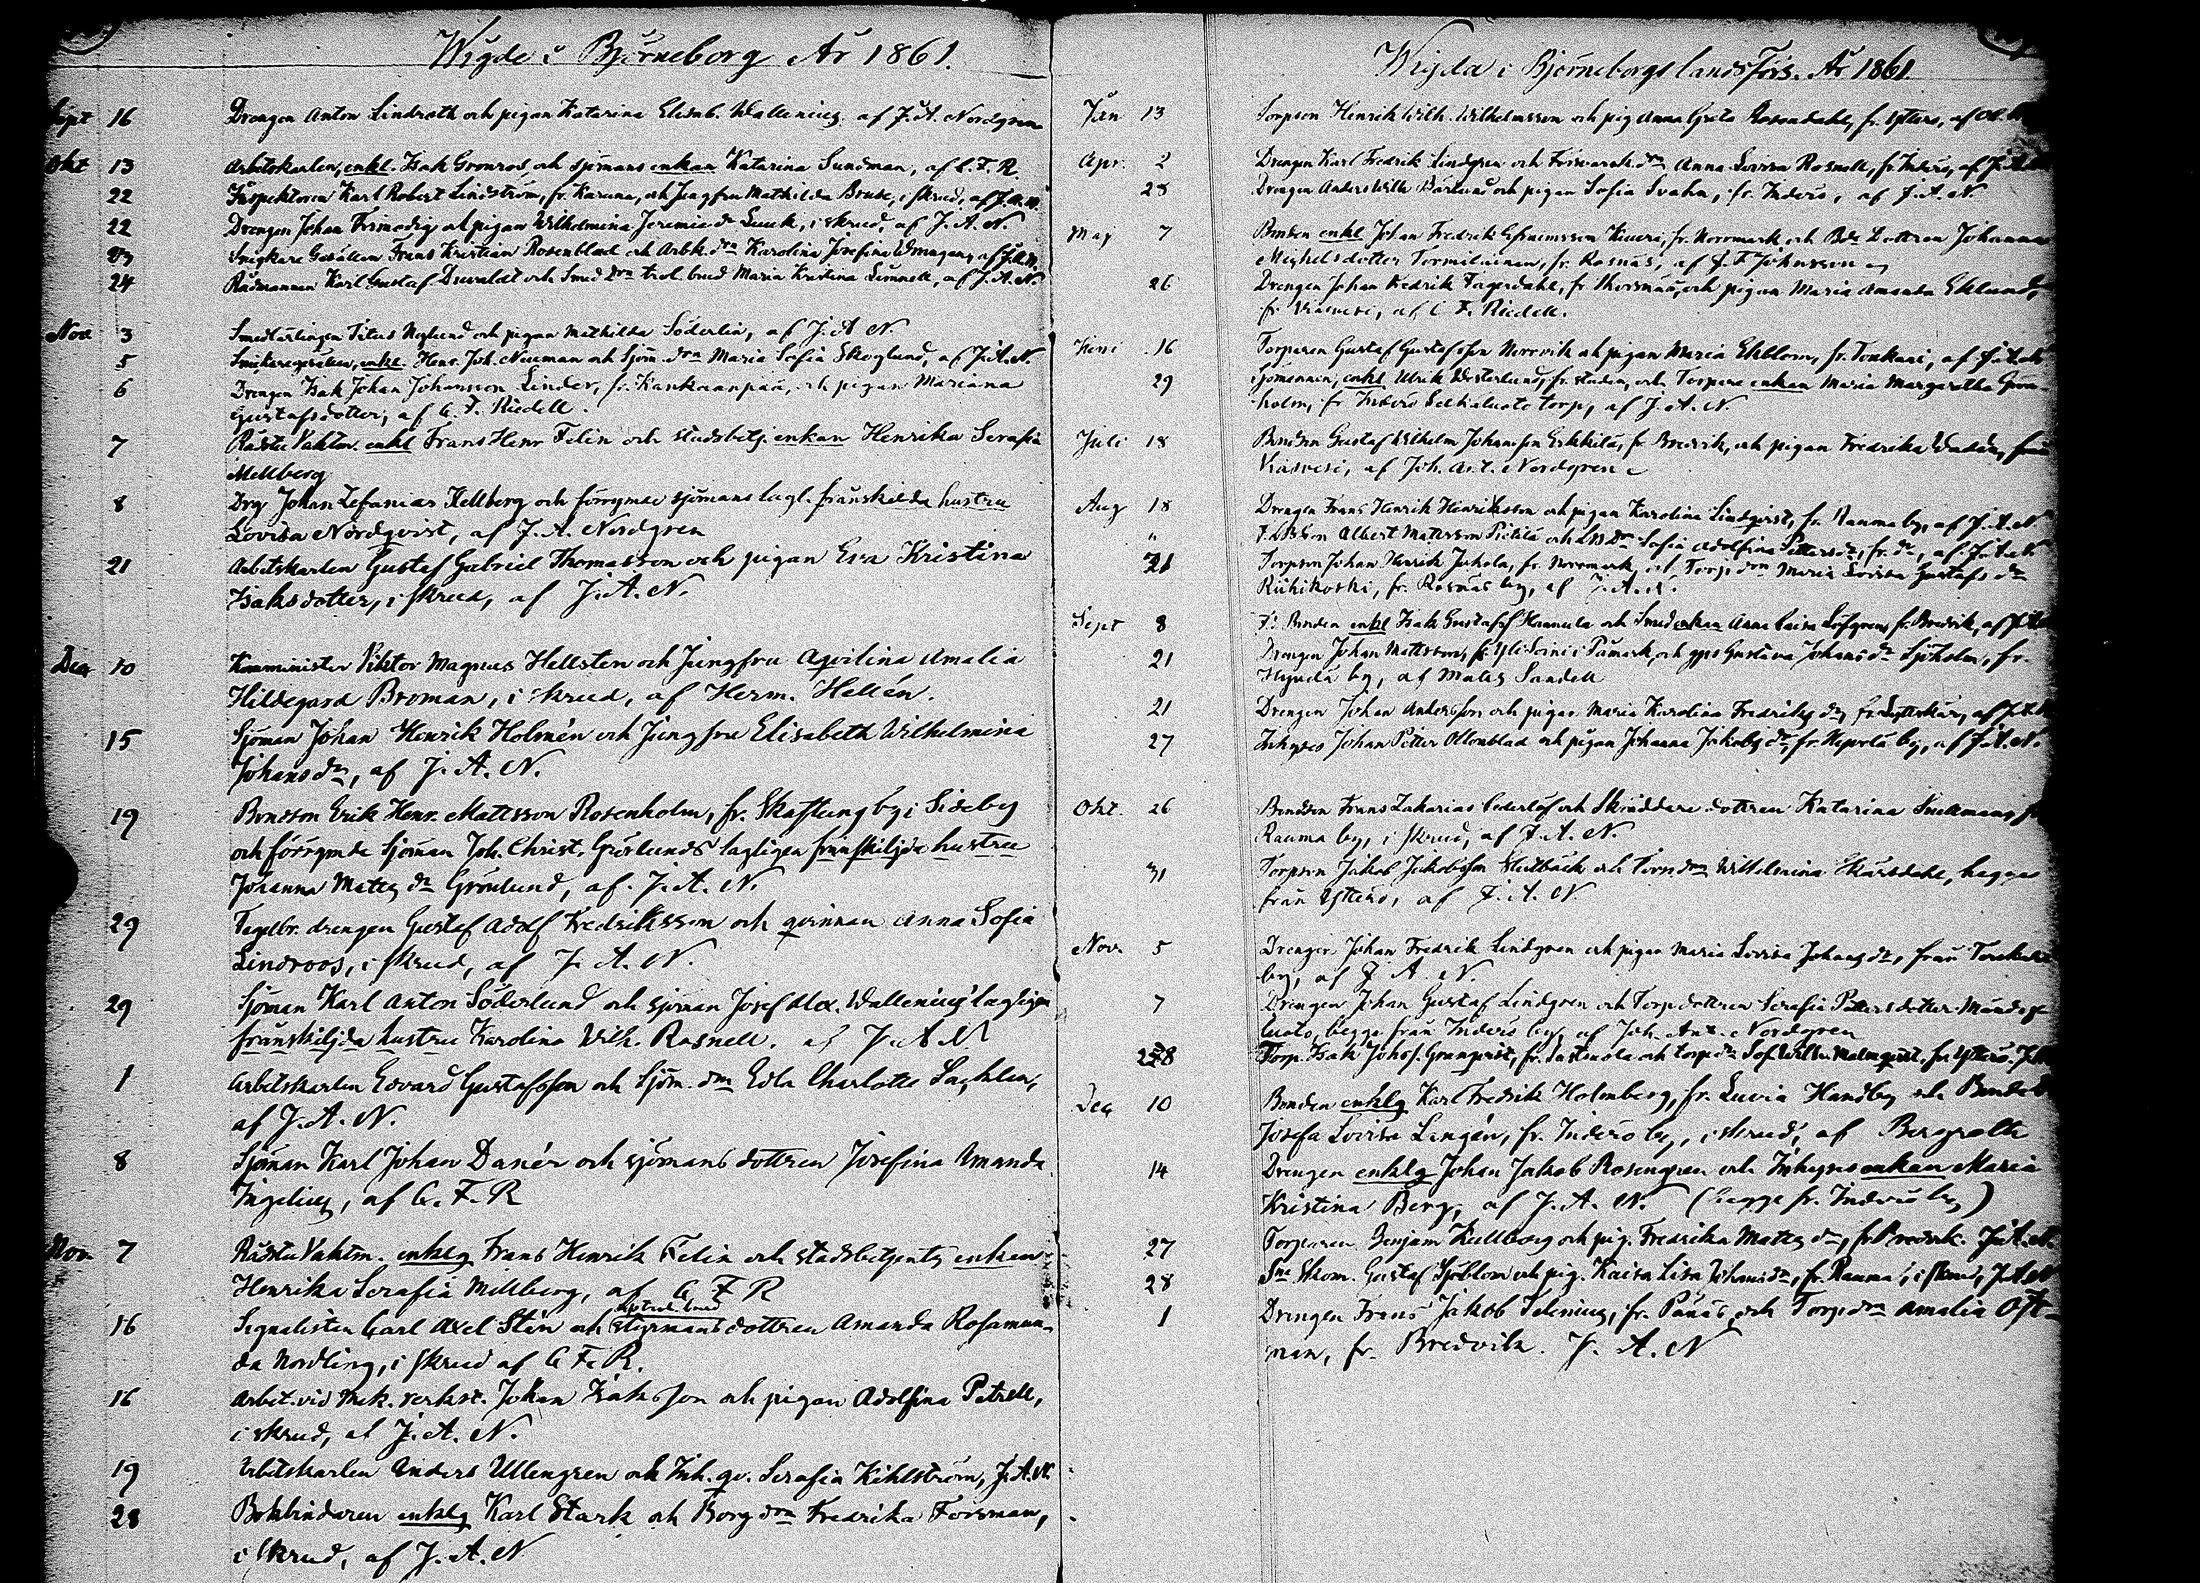 Wigde i Björneborg År 1861.
Sept 16 Drengen Anton Lindroth och pigan Katarina Elisab. Wallenius af J. A. Nordgren
Okt 13 Arbetskarlen, enkl. Isak Grönroos, och sjömans enkan Katarina Sundman, af C. F. R.
22 Inspektoren Karl Robert Lindström, fr. Karuna, och Jungfru Mathilda Bruse, i skrud, af J. A. N.
22 Drengen Johan Frimodig och pigan Wilhelmina Jeremie dr Luuk, i skrud, af J. A. N.
23 Snickare Gesällen Frans Kristian Rosenblad och Arbk. drn Karolina Josefina Wrangen, af J. A. N.
24 Rådmannen Karl Gustaf och Smed drn Maria Kristina Limnell, af J. A. N.
Nov 3 Smedlärlingen Titus Neglund och pigan Mathilda Söderlin, af J. A. N.
5 enkl. Henr. Joh. Neuman och Sjöm. drn Maria Sofia Skoglund, af J. A. N.
6 Drengen Isak Johan Johansson Linder, fr. Kankaanpää, och pigan Mariana
Gustafsdotter, af C. F. Riedell.
7 Rådstu Vaktm. enkl Frans Henr Felin och stadsbetj. enkan Henrika Serafia
Mellberg
8 Drg Johan Zefanias Kellberg och förrymde sjömans lagl. frånskilda hustru
Lovisa Nordqvist, af J. A. Nordgren
21 Arbetskarlen Gustaf Gabriel Thomasson och pigan Eva Kristina
Isaksdotter, i skrud, af J. A. N.
Dec 10 Komminister Viktor Magnus Hellsten och Jungfru Aqvilina Amalia
Hildegard Broman, i skrud, af Herm. Hellén.
15 Sjöman Johan Henrik Holmén och Jungfru Elisabeth Wilhelmina
Johans dr, af J. A. N.
19 Bondson Erik Henr. Mattsson Rosenholm, fr. Skaftung by i Sideby
och förrymde Sjöman Joh. Christ. Grönlunds lagligen frånskiljda hustru
Johanna Mats dr Grönlund, af J. A. N.
29 Tegelbr. drengen Gustaf Adolf Fredriksson och qvinnan Anna Sofia
Lindroos, i skrud, af J. A. N.
29 Sjöman Karl Anton Söderlund och sjöman Josef Alex. Wallenius' lagligen
frånskiljda hustru Karolina Wilh. Rosnell. af J. A. N.
1 Arbetskarlen Edvard Gustafsson och Sjöm. drn Edla Charlotte Saghlen,
af J. A. N.
8 Sjöman Karl Johan Danér och sjömans dottren Josefina Amanda
Ingelius, af C. F. R
Nov 7 Rådstu Vaktm. enklg Frans Henrik Felin och stadsbetjents enkan
Henrika Serafia Millberg, af C. F. R
16 Signalisten Carl Axel Stén och styrmans dottren Amanda Rosamun-
da Nordling, i skrud af C. F. R.
16 Arbet. vid Mek. verkst. Johan Isaksson och pigan Adolfina Petrell,
i skrud, af J. A. N.
19 Arbetskarlen Anders Ullengren och Inh. qv. Serafia Kihlström, J. A. N.
28 Bokbindaren enklg Karl Stark och Borg drn Fredrika Forsman,
i skrud, af J. A. N
Wigda i Björneborgs landsförs. År 1861.
Jan 13 Torpson Henrik Wilh. Wilhelmsson och pig Anna Greta Rosendahl, fr. Ytterö, af
Apr. 2 Drengen Karl Fredrik Lindgren och drn Anna Lovisa Rosnell, fr. Inderö, af J. A. N
28 Drengen Anders Wilh Bärlund och pigan Sofia Svahn, fr. Inderö, af J. A. N.
Maj 7 Bonden enkl Johan Fredrik Efraimsson Kiuru, fr. Norrmark och Bde Dottren Johanna
Michelsdotter Tormilainen, fr. Rosnäs, af J. F. Johnsson
26 Drengen Johan Fredrik Fagerdahl, fr. och pigan Maria Amanda Eklund,
fr. Viasvesi, af C. F. Riedell.
Juni 16 Torparen Gustaf Gustafsson Norrvik och pigan Maria Ekblom, fr. Toukari, af J. A. N.
29 Sjömannen, enkl Ulrik Westerlund, fr. staden, och Torpare enkan Maria Margaretha Grön-
holm, fr. Inderö torp, af J. A. N.
Juli 18 Bondson Gustaf Wilhelm Johansson Erkkilä, fr. Bredvik, och pigan Fredrika från
Viasvesi, af Joh. Ant. Nordgren
Aug 18 Drengen Frans Henrik Henriksson och pigan Karolina Lindqvist, fr. Rauma by, af J. A. N
" Albert Matsson och drn Sofia Adolfina Petters dr, fr. do, af J. A. N.
21 Torpson Johan Henrik Jokela, fr. Norrmark, och Torp. drn Maria Lovisa Gustafs dr
Riihikoski, fr. Rosnäs by, af J. A. N.
Sept 8 F. Bonden enkl Isak Gustafsf Hannula och Smed enkan Anna Caisa Löfgren, fr. Bredvik, af J. A. N.
21 Drengen Johan Mattsson, fr. i Påmark, och Gustava Johans dr Sjöholm, fr.
Hyvelä by, af Mats Sandell
21 Drengen Johan Andersson och pigan Maria Karolina Fredriks dr, fr. Lyttskär, af J. A. N
27 Inhyses Johan Petter Ollonblad och pigan Johanna Jakobs dr, fr. by, af J. A. N.
Okt. 26 Bondson Frans Zakarias Cederlöf och Skräddare dottren Katarina Snellman, fr
Rauma by, i skrud, af J. A. N.
31 Torpson Jakob Jakobsson Slutbäck och Torp drn Wilhelmina begge
från Ytterö, af J. A. N
Nov. 5 Drengen Johan Fredrik Lindgren och pigan Maria Lovisa Johans dr, från
by, af J. A. N.
7 Drengen Johan Gustaf Lindgren och Torpdottren Serafia Pettersdotter
luoto, begge från Inderö by, af Joh. Ant. Nordgren
28 Torp. Isak Johsf. Granqvist, fr. och torp dr Sof. Wilh. Malmqvist, fr. Ytterö. J. A.
Dec 10 Bonden enklg Karl Fredrik Holmberg, fr. Luvia Hanniby och Bonde d
Josefa Lovisa Lengén, fr. Inderö by, i skrud, af Bergroth
14 Drengen enklg Johan Jakob Rosengren och Inhyses enkan Maria
Kristina Berg, af J. A. N. (begge fr. Inderö by)
27 Torparen Benjam Kullberg och pig. Fredrika Mats dr, fr. Bredvik. J. A. N.
28 Gustaf Sjöblom och pig. Kaisa Lisa Johans dr, fr. Rauma, i skrud, J. A. N
1 Drengen Frans Jakob Selenius, fr. Pånäs, och Torp drn Amalia Öst-
man, fr. Bredvik. J. A. N